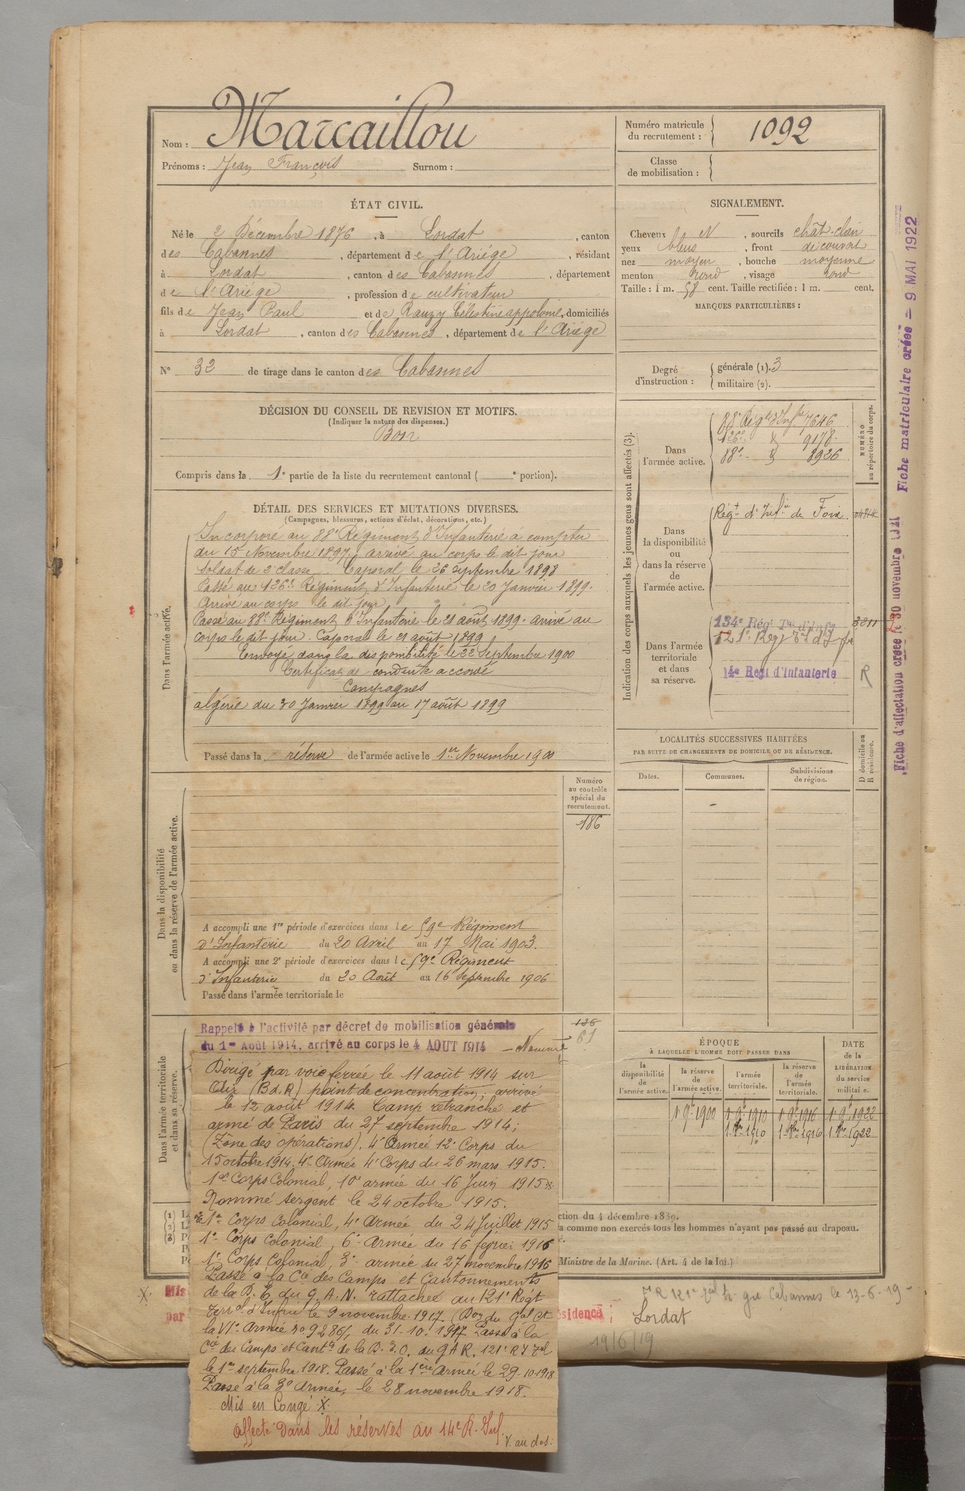 Nom : Marcaillou
Prénoms : Jean François Surnom :
Numéro matricule du recrutement : 1092
Classe de mobilisation :
ÉTAT CIVIL.
Né le 2 Décembre 1876, à Lordat, canton
des Cabannes, département de l'Ariége, résidant
à Lordat, canton des Cabannes, département
de l'Ariége, profession de cultivateur
fils de Jean Paul et de Rauzy Célestine domiciliés
à Lordat, canton des Cabannes, département de l'Ariége
N° 32 de tirage dans le canton des Cabannes
SIGNALEMENT.
Cheveux N, sourcils chât-clair
yeux bleus, front découvert
nez moyen, bouche moyenne
menton rond, visage rond
Taille : 1 m. 58 cent. Taille rectifiée : 1 m. cent.
MARQUES PARTICULIÈRES :
Degré d'instruction : générale (1). 3
militaire (2).
DÉCISION DU CONSEIL DE REVISION ET MOTIFS.
(Indiquer la nature des dispenses.)
Bon
Compris dans la 1e partie de la liste du recrutement cantonal ( e portion).
DÉTAIL DES SERVICES ET MUTATIONS DIVERSES.
(Campagnes, blessures, actions d'éclat, décorations, etc.)
Dans l'armée active.
Incorporé au 88e Régiment d'Infanterie à compter
du 15 Novembre 1897, arrivé au corps le dit jour
soldat de 2e classe. Caporal le 26 septembre 1898
Passé au 126e Régiment d'Infanterie le 20 Janvier 1899.
Arrivé au corps le dit jour
Passé au 88e Régiment d'Infanterie le 21 août 1899. arrivé au
corps le dit jour. Caporal le 21 août 1899
Envoyé dans la disponibilité le 22 Septembre 1900
Certificat de conduite accordé
Campagnes
algérie du 20 Janvier 1899 au 17 août 1899
Passé dans la réserve de l'armée active le 1er Novembre 1900
Indication des corps auxquels les jeunes gens sont affectés (3).
NUMÉRO au répertoire du corps.
Dans l'armée active.
88e Régt d'Infie 7646
126e 9178
88e 8926
Dans la disponibilité ou dans la réserve de l'armée active.
Régt d'Infie de Foix
Dans l'armée territoriale et dans sa réserve.
134e Régt Tal d'Infie
121e Régt Tal d'Infie
14e Régt d'Infanterie
R
LOCALITÉS SUCCESSIVES HABITÉES
PAR SUITE DE CHANGEMENTS DE DOMICILE OU DE RÉSIDENCE.
Dates. Communes. Subdivisions de région.
D domicile ou R résidence.
Dans la disponibilité ou dans la réserve de l'armée active.
Numéro au contrôle spécial du recrutement.
186
A accompli une 1re période d'exercices dans le 59e Régiment
d'Infanterie du 20 Avril au 17 Mai 1903.
A accompli une 2e période d'exercices dans le 59e Régiment
d'Infanterie du 20 Août au 16 Septembre 1906
Passé dans l'armée territoriale le
Dans l'armée territoriale et dans sa réserve.
Rappelé à l'activité par décret de mobilisation générale
du 1er Août 1914, arrivé au corps le 4 AOUT 1914
Dirigé par voie ferrée le 11 août 1914 sur
(B.d.R) point de concentration, arrivé
le 12 août 1914. Camp retranché et
armé de Paris du 27 septembre 1914;
(Zone des opérations). 4e Armée 12e Corps du
15 octobre 1914, 4e Armée 4e Corps du 26 mars 1915.
1er Corps Colonial, 10e armée du 16 Juin 1915
Nommé sergent le 24 octobre 1915.
1er Corps Colonial, 4e Armée du 24 Juillet 1915
1er Corps Colonial, 6e Armée du 16 février 1916
1er Corps Colonial, 3e armée du 27 novembre 1916
Passé à la Cie des Camps et Cantonnements
de la D. E. du G.A.N. rattachée au 121e Régt
Terr. d'Infrie le 9 novembre 1917.
la VIe Armée no 9286/1 du 31-10-1917. Passé à la
Cie des Camps et Cants de la D.E. du G A R. 121e R I Tal
le 1er septembre 1918. Passé à la 1ère Armée le 29-10-1918
Passé à la 3e Armée, le 28 novembre 1918.
Mis en Congé X.
Affecté dans les réserves au 14e R. Inf.
V. au dos.
ÉPOQUE
À LAQUELLE L'HOMME DOIT PASSER DANS
la disponibilité de l'armée active. la réserve de l'armée active. l'armée territoriale. la réserve de l'armée territoriale.
DATE de la LIBÉRATION du service militaire.
1 9bre 1900 1 9bre 1910 1 9bre 1916 1 9bre 1922
ction du 4 décembre 1889.
a comme non exercés tous les hommes n'ayant pas passé au drapeau.
Ministre de la Marine. (Art. 4 de la loi.)
Cabannes le 13-6-19
Lordat
19/6/19
Fiche matriculaire créée - 9 MAI 1922
Fiche d'affectation créée le 30 novembre